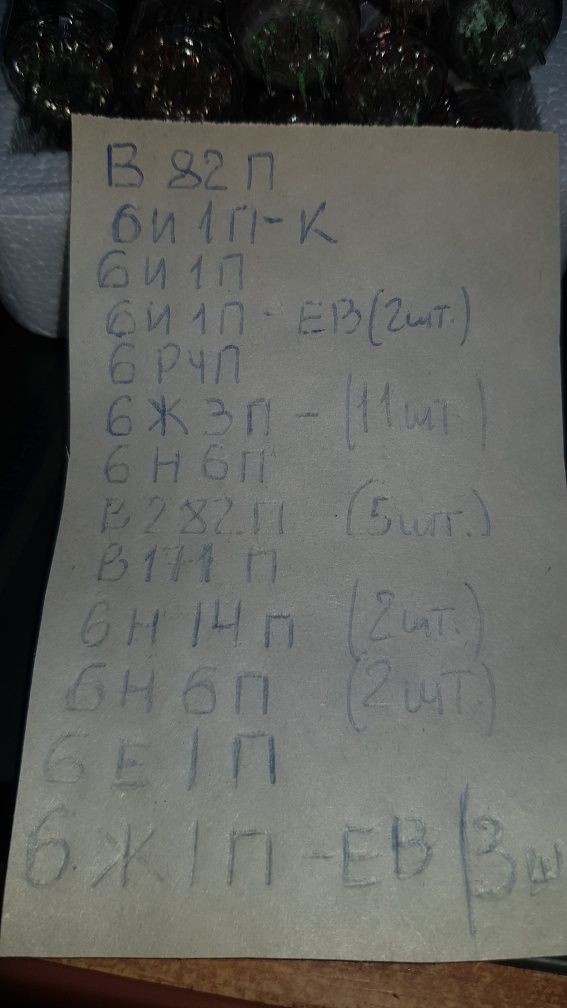 В 82 П
6И1П-К
6И1П
6И1П - ЕВ (2шт.)
6Р4П
6Ж3П - (11шт)
6Н6П
В282П (5шт.)
В171П
6Н14П (2шт.)
6Н6П (2шт.)
6Е1П
6Ж1П-ЕВ (3ш